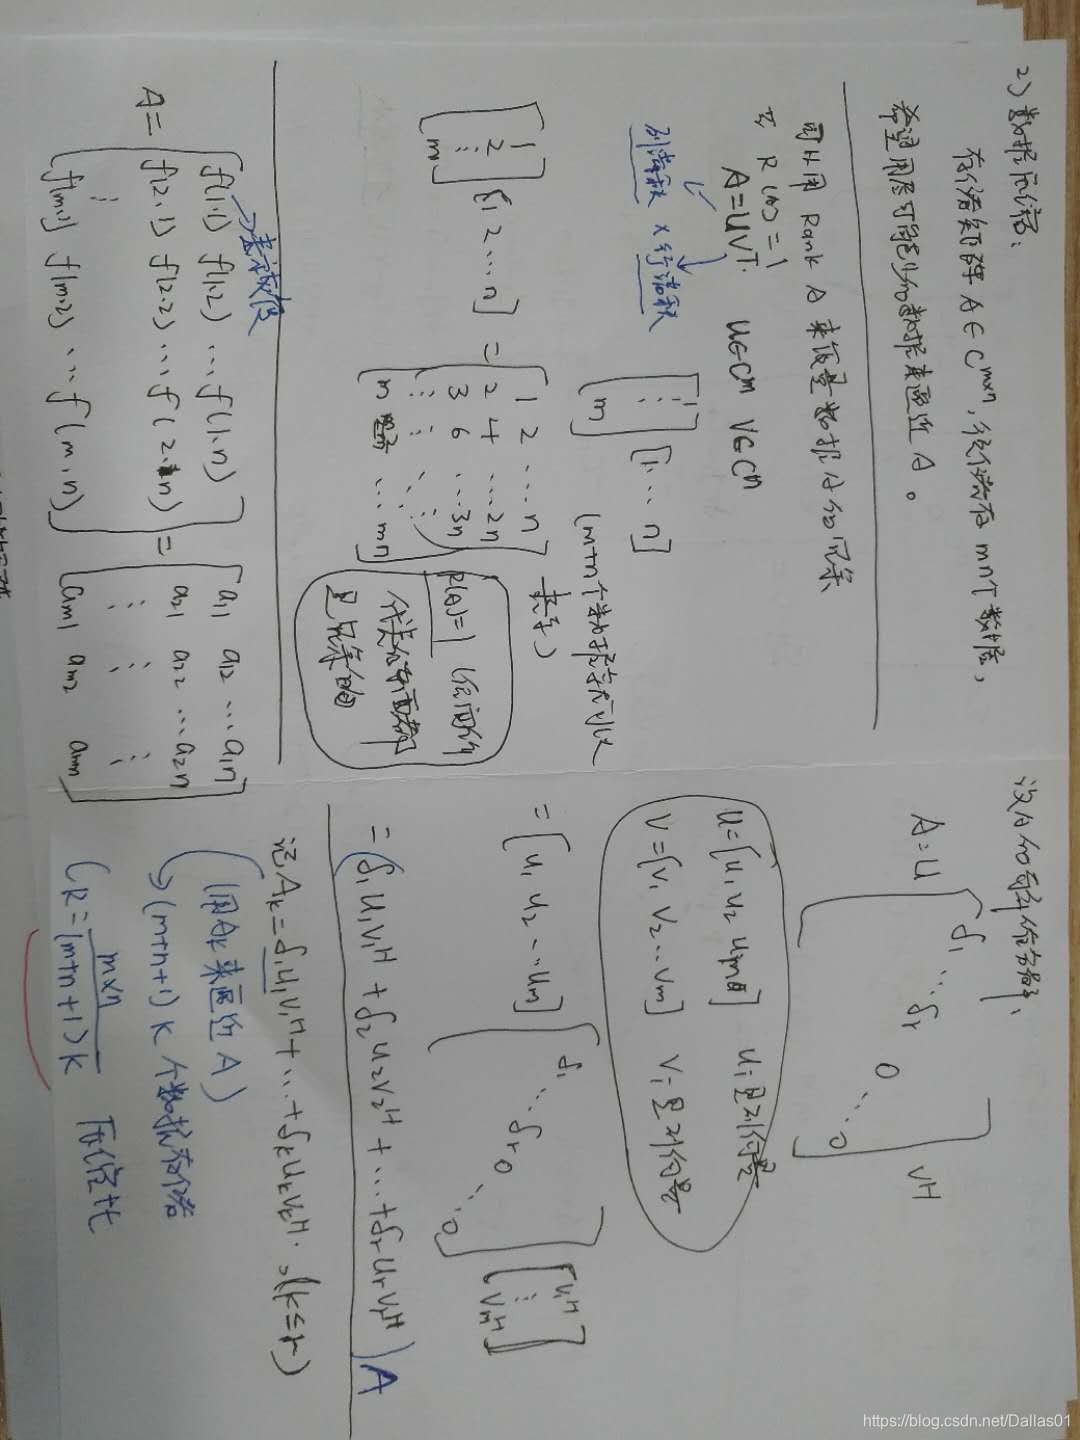 2) 数据压缩:
存储矩阵 A∈C^{m×n}, 须储存 mn个数据,
希望用尽可能少的数据来逼近 A。
可以用 Rank A 来衡量数据A的冗余
若 R(A)=1
A=UV^T. U∈C^m V∈C^n
列堆积 × 行堆积
[1 ⋮ m] [1 ⋯ n] (m+n个数据就可以
表示)
[1 2 ⋮ m] [1 2 ⋯ n] = [1 2 ⋯ n
2 4 ⋯ 2n
3 6 ⋯ 3n
⋮ ⋮ ⋱ ⋮
m ⋯ mn]
R(A)=1
是冗余的
表灰度
A= [f(1,1) f(1,2) ⋯ f(1,n)
f(2,1) f(2,2) ⋯ f(2,n)
⋮
f(m,1) f(m,2) ⋯ f(m,n)]
= [a11 a12 ⋯ a1n
a21 a22 ⋯ a2n
⋮ ⋮ ⋮
am1 am2 amn]
设A的奇异值分解,
A=U [δ1 ⋱ δr 0 ⋱ 0] V^H
U=[u1 u2 um] ui是列向量
V=[v1 v2 ⋯ vm] vi是列向量
= [u1 u2 ⋯ um] [δ1 ⋱ δr 0 ⋱ 0] [v1^H ⋮ vm^H]
= (δ1u1v1^H + δ2u2v2^H + ⋯ + δrurvr^H) A
记 Ak=δ1u1v1^H + ⋯ + δkukvk^H. (k≤r)
(用Ak来逼近A)
(m+n+1)k 个数据存储
(R= m×n/(m+n+1)k 压缩比
https://blog.csdn.net/Dallas01